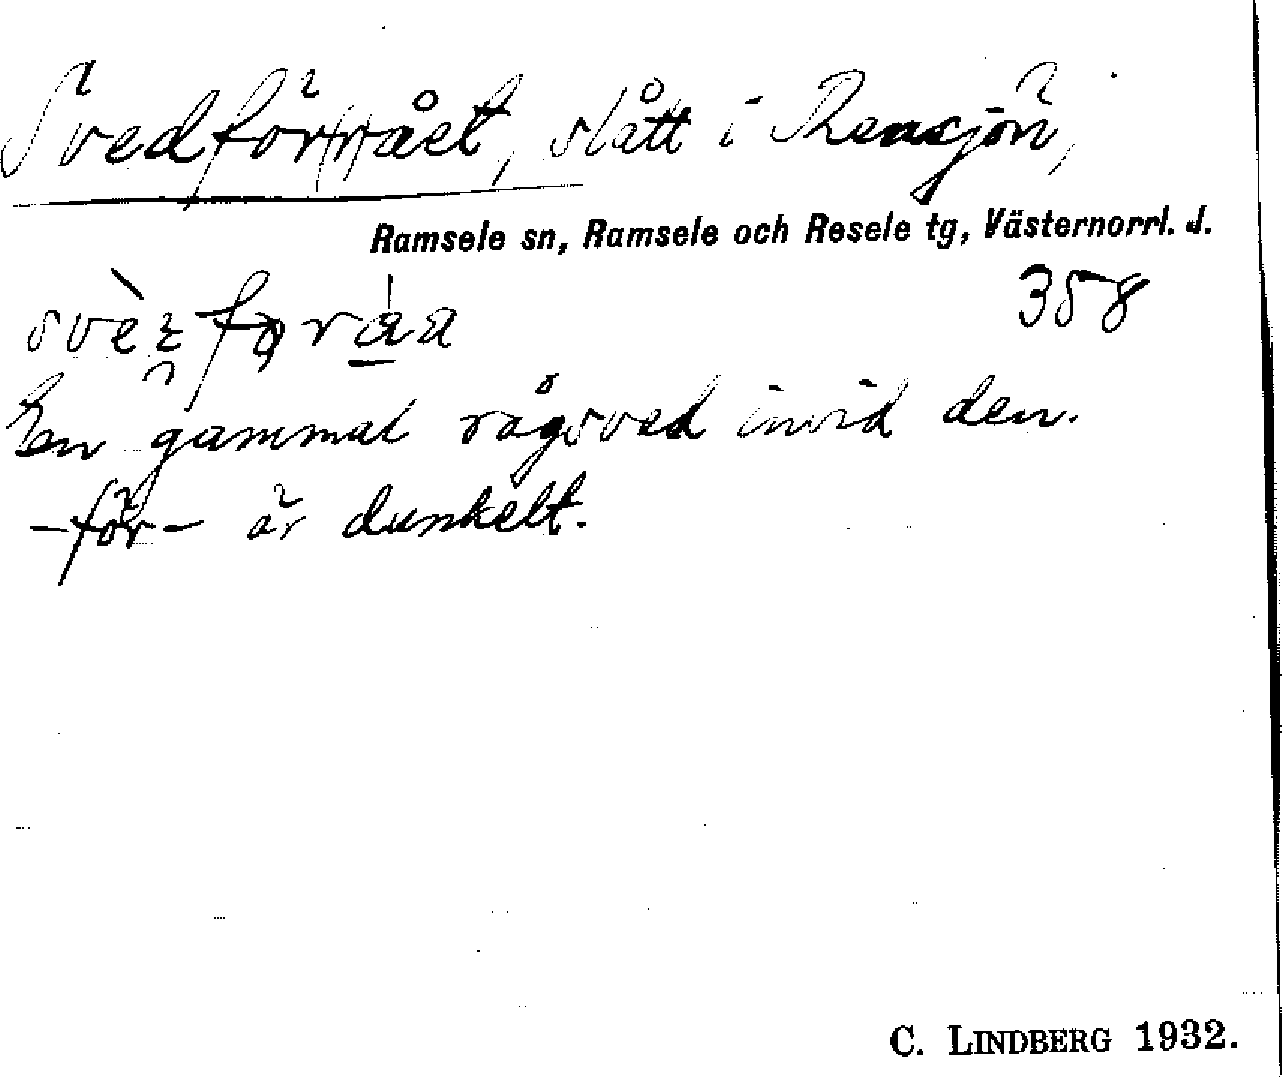 Svedför(r)ået, slått i Rensjön,
Ramsele sn, Ramsele och Resele tg, Västernorrl. l.
358
En gammal rågsved invid den.
-för- är dunkelt.
C. LINDBERG 1932.